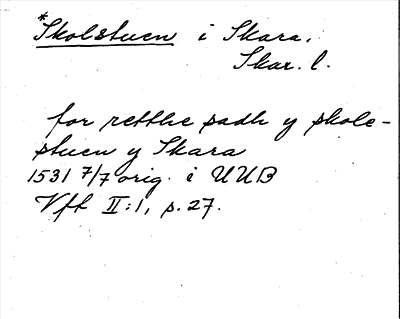 *Skolstuen i Skara.
Skar. l.
for retthe sadh y skole-
stuen y Skara
1531 7/7 orig. i UUB
Vft II:1, s. 27.